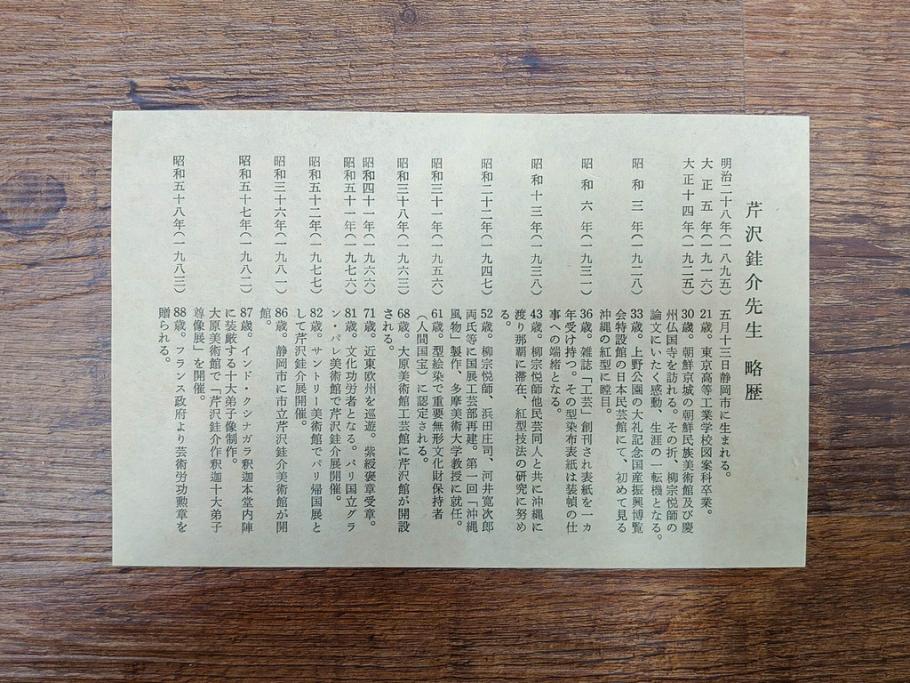 芹沢銈介先生 略歴
明治二十八年(一八九五) 五月十三日静岡市に生まれる。
大正五年(一九一六) 21歳。東京高等工業学校図案科卒業。
大正十四年(一九二五) 30歳。朝鮮京城の朝鮮民族美術館及び慶
州仏国寺を訪れる。その折、柳宗悦師の
論文にいたく感動、生涯の一転機となる。
昭和三年(一九二八) 33歳。上野公園の大礼記念国産振興博覧
会特設館の日本民芸館にて、初めて見る
沖縄の紅型に瞠目。
昭和六年(一九三一) 36歳。雑誌「工芸」創刊され表紙を一カ
年受け持つ。その型染布表紙は装幀の仕
事への端緒となる。
昭和十三年(一九三八) 43歳。柳宗悦師他民芸同人と共に沖縄に
渡り那覇に滞在、紅型技法の研究に努め
る。
昭和二十二年(一九四七) 52歳。柳宗悦師、浜田庄司、河井寛次郎
両氏等に国展工芸部再建。第一回「沖縄
風物」製作、多摩美術大学教授に就任。
昭和三十一年(一九五六) 61歳。型絵染で重要無形文化財保持者
(人間国宝)に認定される。
昭和三十八年(一九六三) 68歳。大原美術館工芸館に芹沢館が開設
される。
昭和四十一年(一九六六) 71歳。近東欧州を巡遊。紫綬褒章受章。
昭和五十一年(一九七六) 81歳。文化功労者となる。パリ国立グラ
ン・パレ美術館で芹沢銈介展開催。
昭和五十二年(一九七七) 82歳。サントリー美術館でパリ帰国展と
して芹沢銈介展開催。
昭和三十六年(一九八一) 86歳。静岡市に市立芹沢銈介美術館が開
館。
昭和五十七年(一九八二) 87歳。インド・クシナガラ釈迦本堂内陣
に装厳する十大弟子像制作。
大原美術館で「芹沢銈介作釈迦十大弟子
尊像展」を開催。
昭和五十八年(一九八三) 88歳。フランス政府より芸術労功勲章を
贈られる。